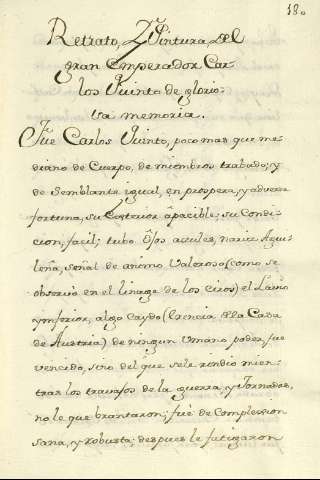 18.
Retrato, y Pintura, del
gran Emperador Car-
los Quinto de glorio-
va memoria.
Fue Carlos Quinto, poco mas que me-
diano de Cuerpo, de miembros trabado; y
de semblante igual, en prospera, y adversa
fortuna, su exterior apacible; su Condi-
cion, facil; tubo Ojos azules, nariz Agui-
leña, señal de animo Valeroso (como se
observò en el linage de los ciros) el Lavio
ynferior, algo caydo (herencia dela Casa
de Austria) de ningun vmano poder, fue
vencido, sino del que sele rindio mien-
tras los travajos de la guerra, y Jornadas,
no le que brantaron; fuè de Complession
sana, y robusta; despues le fatigaron